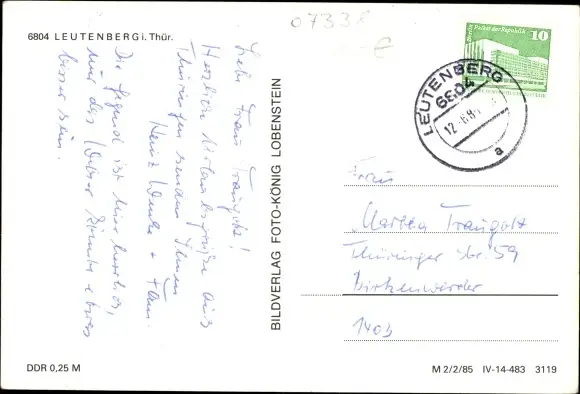 07338
6804 LEUTENBERG i. Thür.
Liebe Frau Traugott!
Herzliche Urlaubsgrüße aus
Thüringen senden Ihnen
Heinz + Fam.
Die Gegend ist hier herrlich,
nur das Wetter könnte etwas
besser sein.
BILDVERLAG FOTO-KÖNIG LOBENSTEIN
Berlin, Palast der Republik
10
DDR
LEUTENBERG
6804
a
Frau
Martha Traugott
Thüringer Str. 59
Birkenwerder
1403
DDR 0,25 M
M 2/2/85 IV-14-483 3119